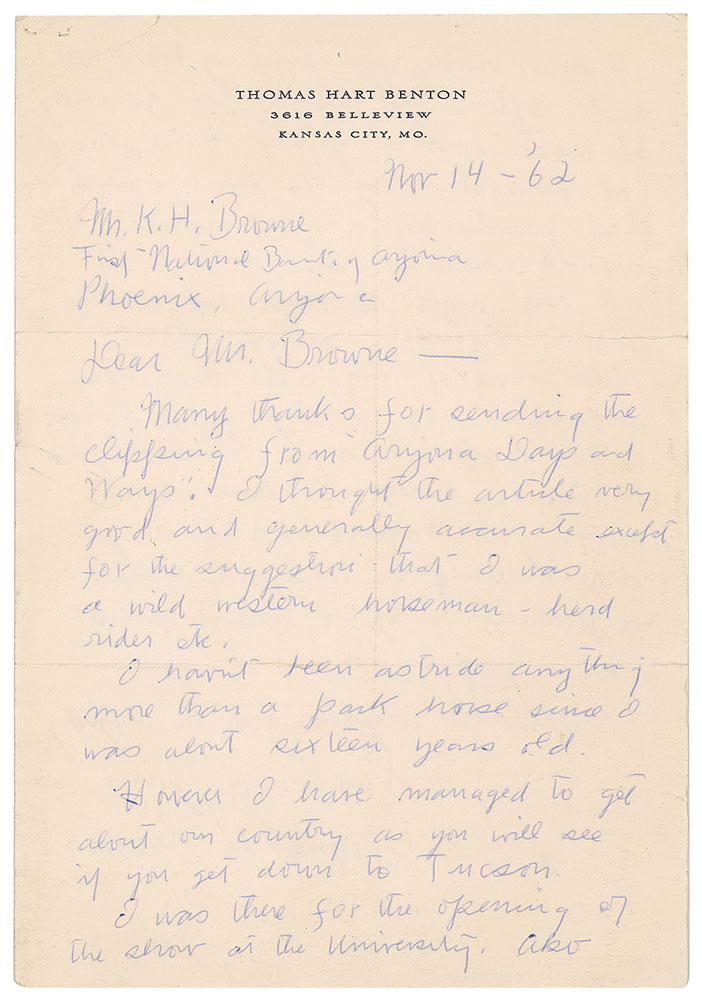 THOMAS HART BENTON
3616 BELLEVIEW
KANSAS CITY, MO.
Nov 14 - '62
Mr. K. H. Browne
First National Bank of Arizona
Phoenix, Arizona
Dear Mr. Browne —
Many thanks for sending the
clipping from "Arizona Days and
Ways". I thought the article very
good and generally accurate except
for the suggestion that I was
a wild western horseman - herd
rider etc.
I havn't been astride anything
more than a park horse since I
was about sixteen years old.
However I have managed to get
about our country as you will see
if you get down to Tucson.
I was there for the opening of
the show at the University. Also